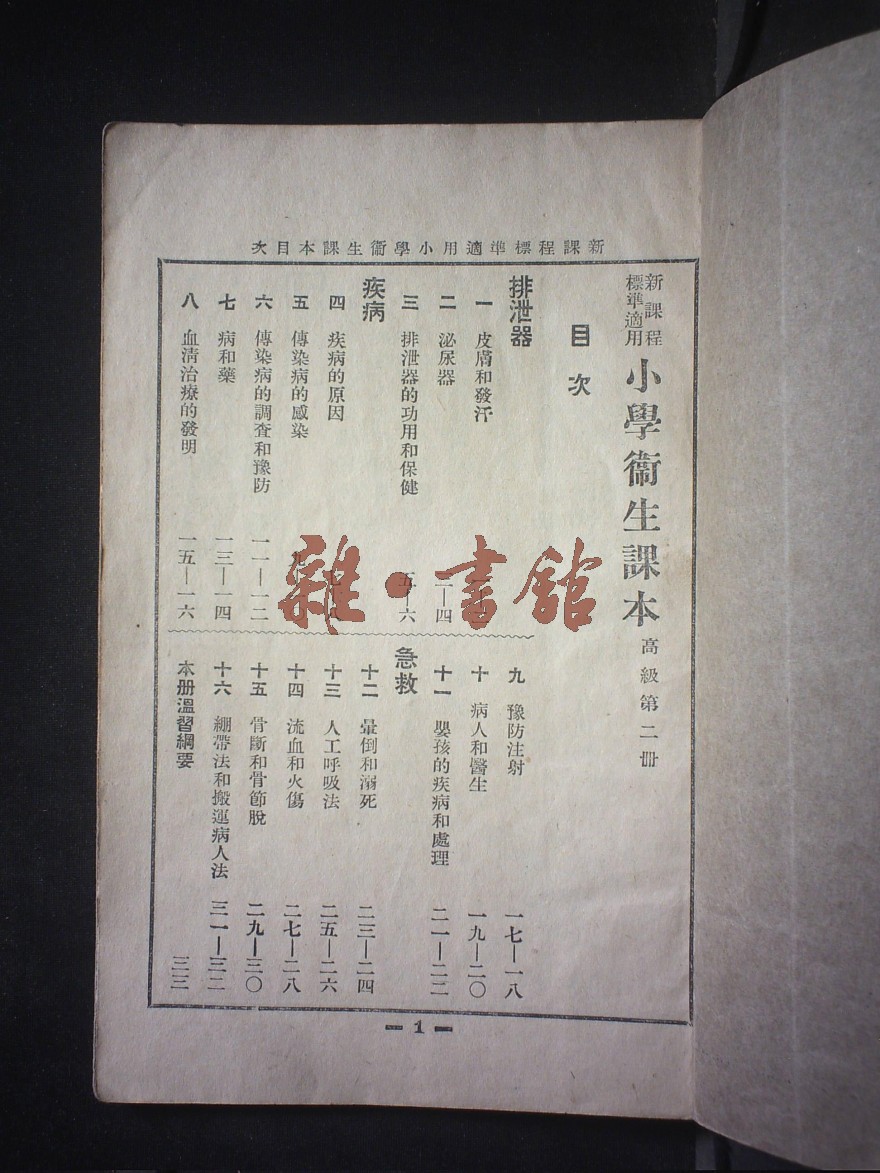 新課程標準適用小學衞生課本目次
新課程標準適用 小學衞生課本 高級第二冊
目次
排泄器
一 皮膚和發汗
二 泌尿器 三—四
三 排泄器的功用和保健 五—六
疾病
四 疾病的原因
五 傳染病的感染 九
六 傳染病的調查和豫防 一一—一二
七 病和藥 一三—一四
八 血清治療的發明 一五—一六
九 豫防注射 一七—一八
十 病人和醫生 一九—二〇
十一 嬰孩的疾病和處理 二一—二二
急救
十二 暈倒和溺死 二三—二四
十三 人工呼吸法 二五—二六
十四 流血和火傷 二七—二八
十五 骨斷和骨節脫 二九—三〇
十六 綳帶法和搬運病人法 三一—三二
本册溫習綱要 三三
雜·書館
— 1 —